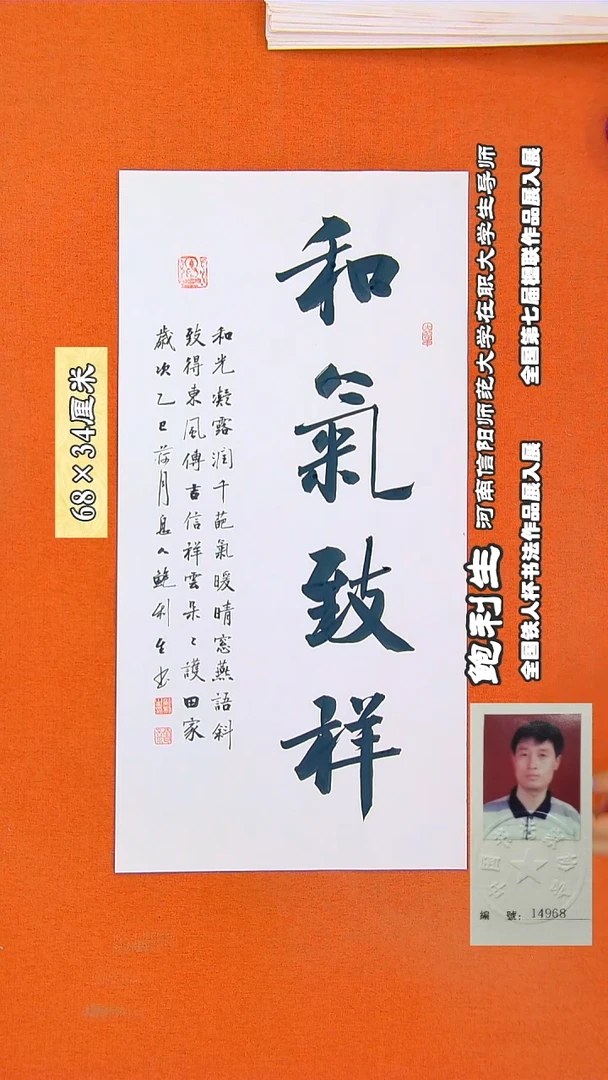 和氣致祥
和光凝露润千葩氣暖晴窓燕語斜
致得東風傳吉信祥雲朵々護田家
歲次乙巳荷月息人鲍利生书
68×34厘米
鲍利生 河南信阳师范大学在职大学生导师
全国铁人杯书法作品展入展 全国第七届楹联作品展入展
編 號: 14968